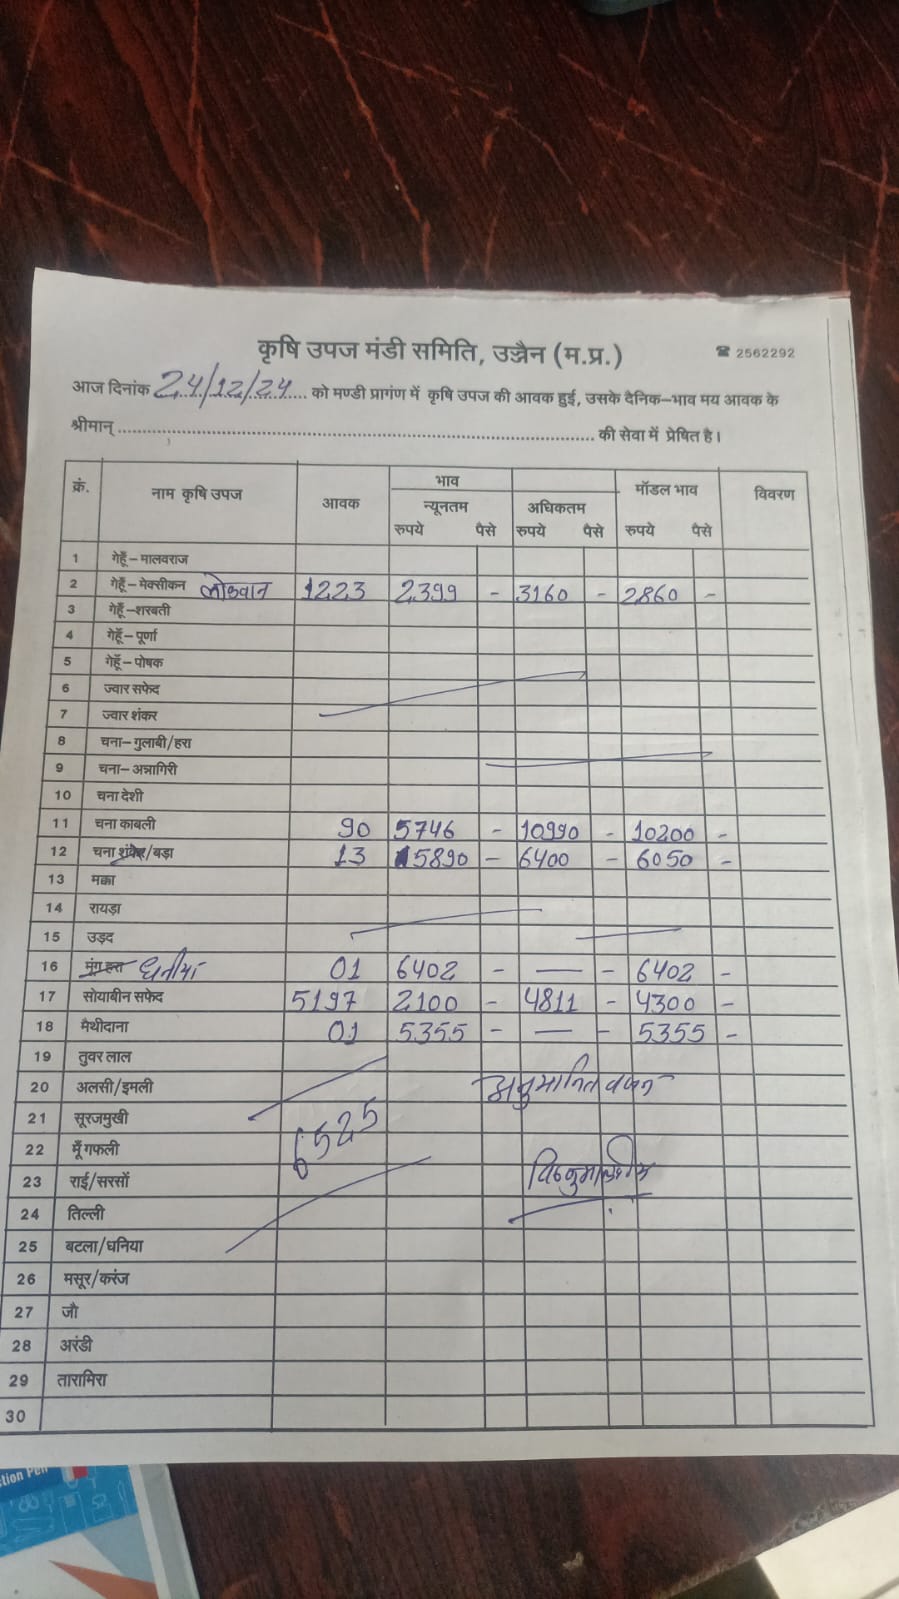 कृषि उपज मंडी समिति, उज्जैन (म.प्र.) ☎ 2562292
आज दिनांक 24/12/24 को मण्डी प्रागंण में कृषि उपज की आवक हुई, उसके दैनिक-भाव मय आवक के
श्रीमान् की सेवा में प्रेषित है।
क्रं. नाम कृषि उपज आवक भाव मॉडल भाव विवरण
न्यूनतम अधिकतम
रुपये पैसे रुपये पैसे रुपये पैसे
1 गेहूँ-मालवराज
2 गेहूँ-मेक्सीकन लोकवान 1223 2399 - 3160 - 2860 -
3 गेहूँ-शरबती
4 गेहूँ-पूर्णा
5 गेहूँ-पोषक
6 ज्वार सफेद
7 ज्वार शंकर
8 चना-गुलाबी/हरा
9 चना-अन्नागिरी
10 चना देशी
11 चना काबली 90 5746 - 10990 - 10200 -
12 चना शंकर/बड़ा 13 5890 - 6400 - 6050 -
13 मक्का
14 रायड़ा
15 उड़द
16 मूंग हरा धनीया 01 6402 - — - 6402 -
17 सोयाबीन सफेद 5197 2100 - 4811 - 4300 -
18 मैथीदाना 01 5355 - — - 5355 -
19 तुवर लाल
20 अलसी/इमली अनुमानित वजन
21 सूरजमुखी 6525
22 मूँगफली
23 राई/सरसों
24 तिल्ली
25 बटला/धनिया
26 मसूर/करंज
27 जौ
28 अरंडी
29 तारामिरा
30
tion Pen